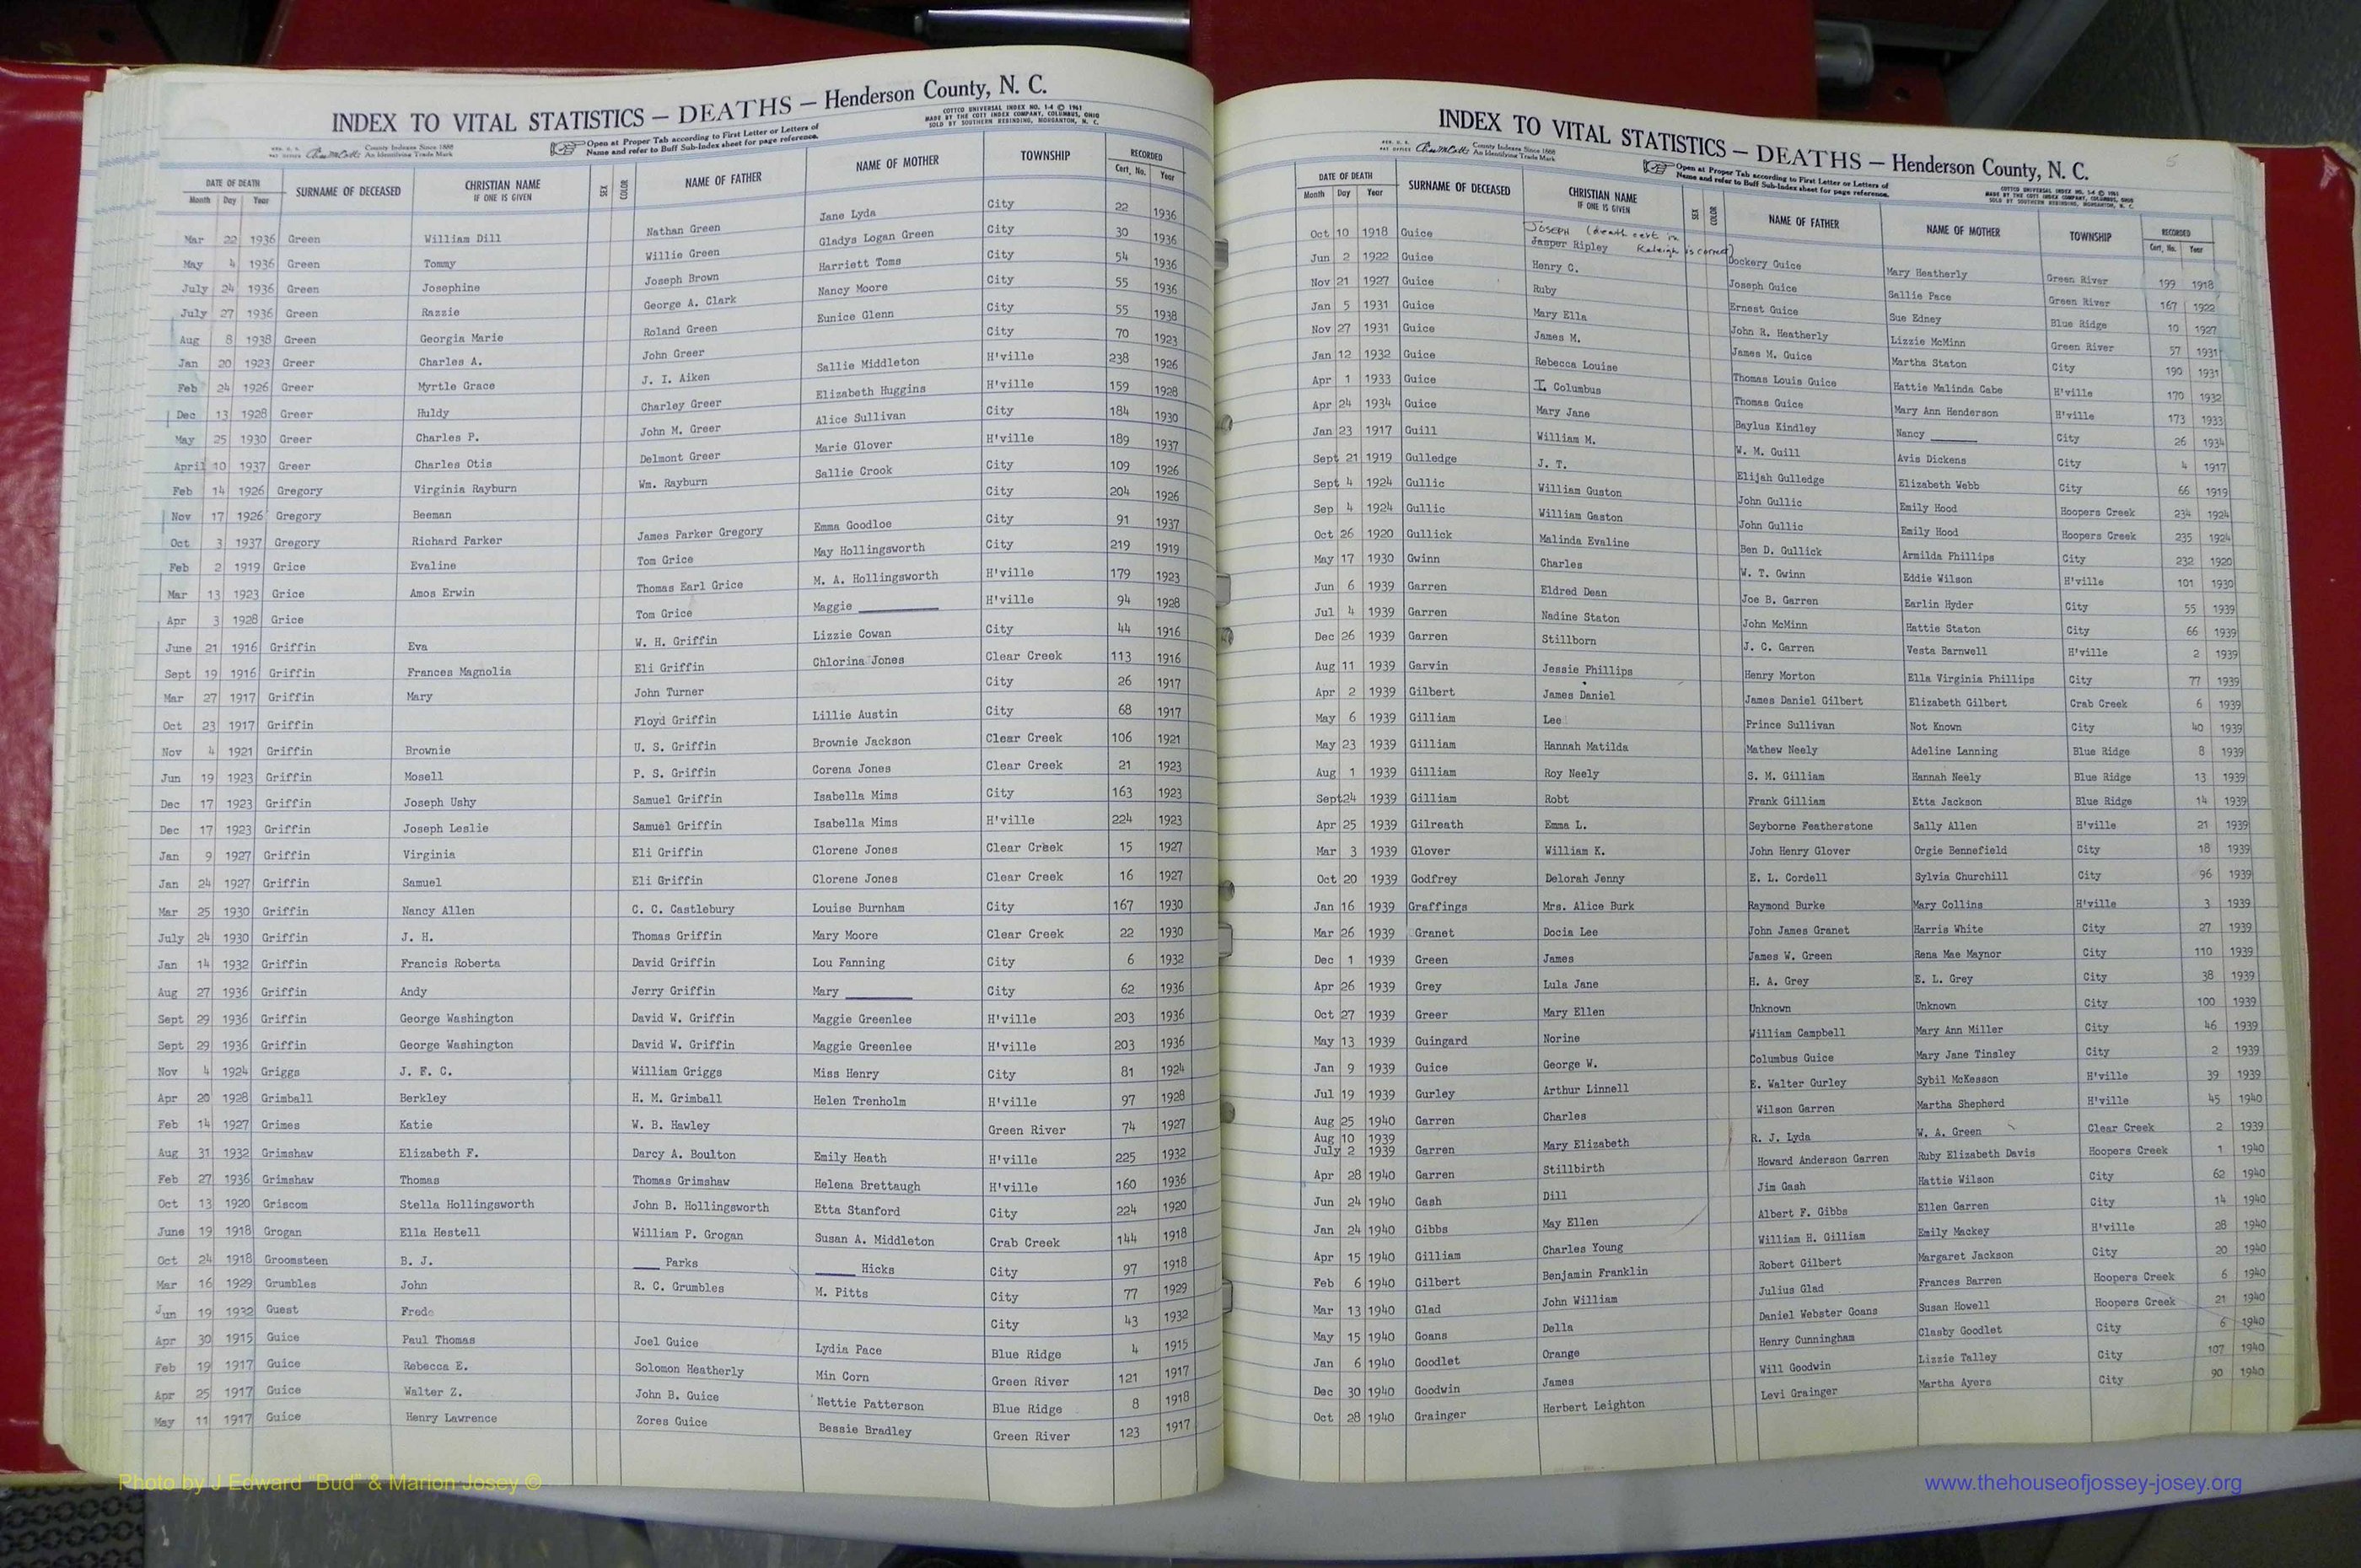 INDEX TO VITAL STATISTICS — DEATHS — Henderson County, N. C.
COTTCO UNIVERSAL INDEX NO. 1-4 © 1961
MADE BY THE COTT INDEX COMPANY, COLUMBUS, OHIO
SOLD BY SOUTHERN REBINDING, MORGANTON, N. C.
County Indexes Since 1888
An Identifying Trade Mark
Open at Proper Tab according to First Letter or Letters of
Name and refer to Buff Sub-Index sheet for page reference.
DATE OF DEATH SURNAME OF DECEASED CHRISTIAN NAME IF ONE IS GIVEN SEX COLOR NAME OF FATHER NAME OF MOTHER TOWNSHIP RECORDED
Month Day Year Cert. No. Year
Mar 22 1936 Green William Dill Nathan Green Jane Lyda City 22 1936
May 4 1936 Green Tommy Willie Green Gladys Logan Green City 30 1936
July 24 1936 Green Josephine Joseph Brown Harriett Toms City 54 1936
July 27 1936 Green Razzie George A. Clark Nancy Moore City 55 1936
Aug 8 1938 Green Georgia Marie Roland Green Eunice Glenn City 55 1938
Jan 20 1923 Greer Charles A. John Greer City 70 1923
Feb 24 1926 Greer Myrtle Grace J. I. Aiken Sallie Middleton H'ville 238 1926
Dec 13 1928 Greer Huldy Charley Greer Elizabeth Huggins H'ville 159 1928
May 25 1930 Greer Charles P. John M. Greer Alice Sullivan City 184 1930
April 10 1937 Greer Charles Otis Delmont Greer Marie Glover H'ville 189 1937
Feb 14 1926 Gregory Virginia Rayburn Wm. Rayburn Sallie Crook City 109 1926
Nov 17 1926 Gregory Beeman City 204 1926
Oct 3 1937 Gregory Richard Parker James Parker Gregory Emma Goodloe City 91 1937
Feb 2 1919 Grice Evaline Tom Grice May Hollingsworth City 219 1919
Mar 13 1923 Grice Amos Erwin Thomas Earl Grice M. A. Hollingsworth H'ville 179 1923
Apr 3 1928 Grice Tom Grice Maggie ______ H'ville 94 1928
June 21 1916 Griffin Eva W. H. Griffin Lizzie Cowan City 44 1916
Sept 19 1916 Griffin Frances Magnolia Eli Griffin Chlorina Jones Clear Creek 113 1916
Mar 27 1917 Griffin Mary John Turner City 26 1917
Oct 23 1917 Griffin Floyd Griffin Lillie Austin City 68 1917
Nov 4 1921 Griffin Brownie U. S. Griffin Brownie Jackson Clear Creek 106 1921
Jun 19 1923 Griffin Mosell P. S. Griffin Corena Jones Clear Creek 21 1923
Dec 17 1923 Griffin Joseph Ushy Samuel Griffin Isabella Mims City 163 1923
Dec 17 1923 Griffin Joseph Leslie Samuel Griffin Isabella Mims H'ville 224 1923
Jan 9 1927 Griffin Virginia Eli Griffin Clorene Jones Clear Creek 15 1927
Jan 24 1927 Griffin Samuel Eli Griffin Clorene Jones Clear Creek 16 1927
Mar 25 1930 Griffin Nancy Allen C. C. Castlebury Louise Burnham City 167 1930
July 24 1930 Griffin J. H. Thomas Griffin Mary Moore Clear Creek 22 1930
Jan 14 1932 Griffin Francis Roberta David Griffin Lou Fanning City 6 1932
Aug 27 1936 Griffin Andy Jerry Griffin Mary ______ City 62 1936
Sept 29 1936 Griffin George Washington David W. Griffin Maggie Greenlee H'ville 203 1936
Sept 29 1936 Griffin George Washington David W. Griffin Maggie Greenlee H'ville 203 1936
Nov 4 1924 Griggs J. F. C. William Griggs Miss Henry City 81 1924
Apr 20 1928 Grimball Berkley H. M. Grimball Helen Trenholm H'ville 97 1928
Feb 14 1927 Grimes Katie W. B. Hawley Green River 74 1927
Aug 31 1932 Grimshaw Elizabeth F. Darcy A. Boulton Emily Heath H'ville 225 1932
Feb 27 1936 Grimshaw Thomas Thomas Grimshaw Helena Brettaugh H'ville 160 1936
Oct 13 1920 Griscom Stella Hollingsworth John B. Hollingsworth Etta Stanford City 224 1920
June 19 1918 Grogan Ella Hestell William P. Grogan Susan A. Middleton Crab Creek 144 1918
Oct 24 1918 Groomsteen B. J. ____ Parks ____ Hicks City 97 1918
Mar 16 1929 Grumbles John R. C. Grumbles M. Pitts City 77 1929
Jun 19 1932 Guest Frede City 43 1932
Apr 30 1915 Guice Paul Thomas Joel Guice Lydia Pace Blue Ridge 4 1915
Feb 19 1917 Guice Rebecca E. Solomon Heatherly Min Corn Green River 121 1917
Apr 25 1917 Guice Walter Z. John B. Guice Nettie Patterson Blue Ridge 8 1918
May 11 1917 Guice Henry Lawrence Zores Guice Bessie Bradley Green River 123 1917
Photo by J Edward "Bud" & Marion Josey ©
INDEX TO VITAL STATISTICS — DEATHS — Henderson County, N. C.
County Indexes Since 1888
An Identifying Trade Mark
Open at Proper Tab according to First Letter or Letters of
Name and refer to Buff Sub-Index sheet for page reference.
COTTCO UNIVERSAL INDEX NO. 1-4 © 1961
MADE BY THE COTT INDEX COMPANY, COLUMBUS, OHIO
SOLD BY SOUTHERN REBINDING, MORGANTON, N. C.
5
DATE OF DEATH SURNAME OF DECEASED CHRISTIAN NAME IF ONE IS GIVEN SEX COLOR NAME OF FATHER NAME OF MOTHER TOWNSHIP RECORDED
Month Day Year Cert. No. Year
JOSEPH (death cert in Raleigh is correct)
Oct 10 1918 Guice Jasper Ripley Dockery Guice Mary Heatherly Green River 199 1918
Jun 2 1922 Guice Henry C. Joseph Guice Sallie Pace Green River 167 1922
Nov 21 1927 Guice Ruby Ernest Guice Sue Edney Blue Ridge 10 1927
Jan 5 1931 Guice Mary Ella John R. Heatherly Lizzie McMinn Green River 57 1931
Nov 27 1931 Guice James M. James M. Guice Martha Staton City 190 1931
Jan 12 1932 Guice Rebecca Louise Thomas Louis Guice Hattie Malinda Cabe H'ville 170 1932
Apr 1 1933 Guice I. Columbus Thomas Guice Mary Ann Henderson H'ville 173 1933
Apr 24 1934 Guice Mary Jane Baylus Kindley Nancy ______ City 26 1934
Jan 23 1917 Guill William M. W. M. Guill Avis Dickens City 4 1917
Sept 21 1919 Gulledge J. T. Elijah Gulledge Elizabeth Webb City 66 1919
Sept 4 1924 Gullic William Guston John Gullic Emily Hood Hoopers Creek 234 1924
Sep 4 1924 Gullic William Gaston John Gullic Emily Hood Hoopers Creek 235 1924
Oct 26 1920 Gullick Malinda Evaline Ben D. Gullick Armilda Phillips City 232 1920
May 17 1930 Gwinn Charles W. T. Gwinn Eddie Wilson H'ville 101 1930
Jun 6 1939 Garren Eldred Dean Joe B. Garren Earlin Hyder City 55 1939
Jul 4 1939 Garren Nadine Staton John McMinn Hattie Staton City 66 1939
Dec 26 1939 Garren Stillborn J. C. Garren Vesta Barnwell H'ville 2 1939
Aug 11 1939 Garvin Jessie Phillips Henry Morton Ella Virginia Phillips City 77 1939
Apr 2 1939 Gilbert James Daniel James Daniel Gilbert Elizabeth Gilbert Crab Creek 6 1939
May 6 1939 Gilliam Lee Prince Sullivan Not Known City 40 1939
May 23 1939 Gilliam Hannah Matilda Mathew Neely Adeline Lanning Blue Ridge 8 1939
Aug 1 1939 Gilliam Roy Neely S. M. Gilliam Hannah Neely Blue Ridge 13 1939
Sept 24 1939 Gilliam Robt Frank Gilliam Etta Jackson Blue Ridge 14 1939
Apr 25 1939 Gilreath Emma L. Seyborne Featherstone Sally Allen H'ville 21 1939
Mar 3 1939 Glover William K. John Henry Glover Orgie Bennefield City 18 1939
Oct 20 1939 Godfrey Delorah Jenny E. L. Cordell Sylvia Churchill City 96 1939
Jan 16 1939 Graffings Mrs. Alice Burk Raymond Burke Mary Collins H'ville 3 1939
Mar 26 1939 Granet Docia Lee John James Granet Harris White City 27 1939
Dec 1 1939 Green James James W. Green Rena Mae Maynor City 110 1939
Apr 26 1939 Grey Lula Jane H. A. Grey E. L. Grey City 38 1939
Oct 27 1939 Greer Mary Ellen Unknown Unknown City 100 1939
May 13 1939 Guingard Norine William Campbell Mary Ann Miller City 46 1939
Jan 9 1939 Guice George W. Columbus Guice Mary Jane Tinsley City 2 1939
Jul 19 1939 Gurley Arthur Linnell E. Walter Gurley Sybil McKesson H'ville 39 1939
Aug 25 1940 Garren Charles Wilson Garren Martha Shepherd H'ville 45 1940
Aug 10 1939
July 2 1939 Garren Mary Elizabeth R. J. Lyda W. A. Green Clear Creek 2 1939
Apr 28 1940 Garren Stillbirth Howard Anderson Garren Ruby Elizabeth Davis Hoopers Creek 1 1940
Jun 24 1940 Gash Dill Jim Gash Hattie Wilson City 62 1940
Jan 24 1940 Gibbs May Ellen Albert F. Gibbs Ellen Garren City 14 1940
Apr 15 1940 Gilliam Charles Young William H. Gilliam Emily Mackey H'ville 28 1940
Feb 6 1940 Gilbert Benjamin Franklin Robert Gilbert Margaret Jackson City 20 1940
Mar 13 1940 Glad John William Julius Glad Frances Barren Hoopers Creek 6 1940
May 15 1940 Goans Della Daniel Webster Goans Susan Howell Hoopers Creek 21 1940
Jan 6 1940 Goodlet Orange Henry Cunningham Clasby Goodlet City 6 1940
Dec 30 1940 Goodwin James Will Goodwin Lizzie Talley City 107 1940
Oct 28 1940 Grainger Herbert Leighton Levi Grainger Martha Ayers City 90 1940
www.thehouseofjossey-josey.org